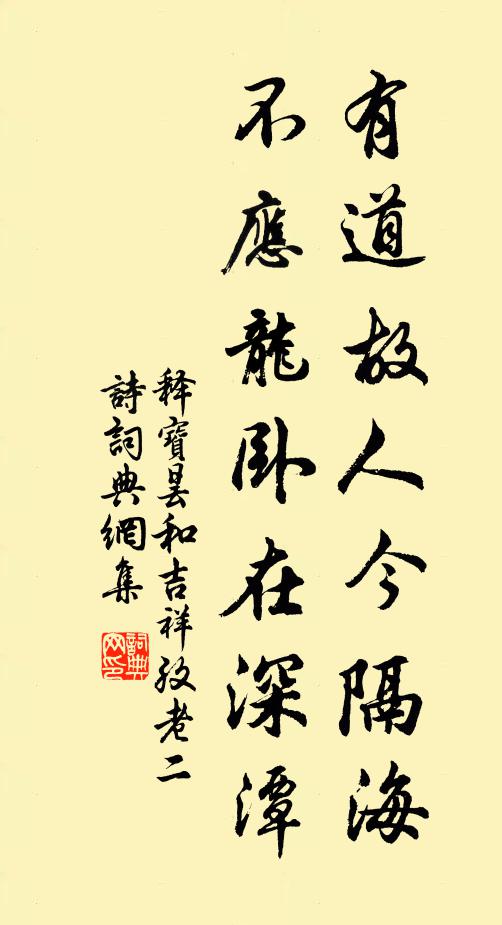 有道故人今隔海
不應龍卧在深潭
释寶曇和吉祥孜老二
詩詞典網集
詞典网印